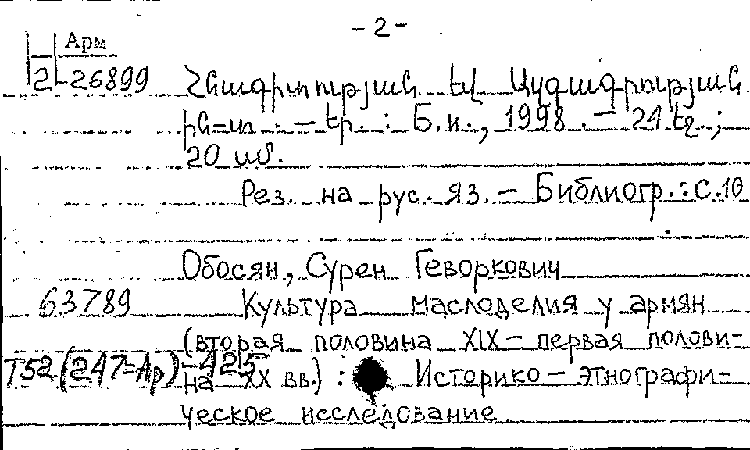 - 2 -
Арм
2-26899 Հնագիտության եվ Ազգագրության
ին-տ. - Եր. : Б.и., 1998. - 24 էջ ;
20 սմ.
Рез. на рус. яз. - Библиогр.: с. 10
Обосян, Сурен Геворкович
63789 Культура маслоделия у армян
(вторая половина XIX - первая полови-
Т52(247=Ар)-425 на XX вв.) : Историко-этнографи-
ческое исследование